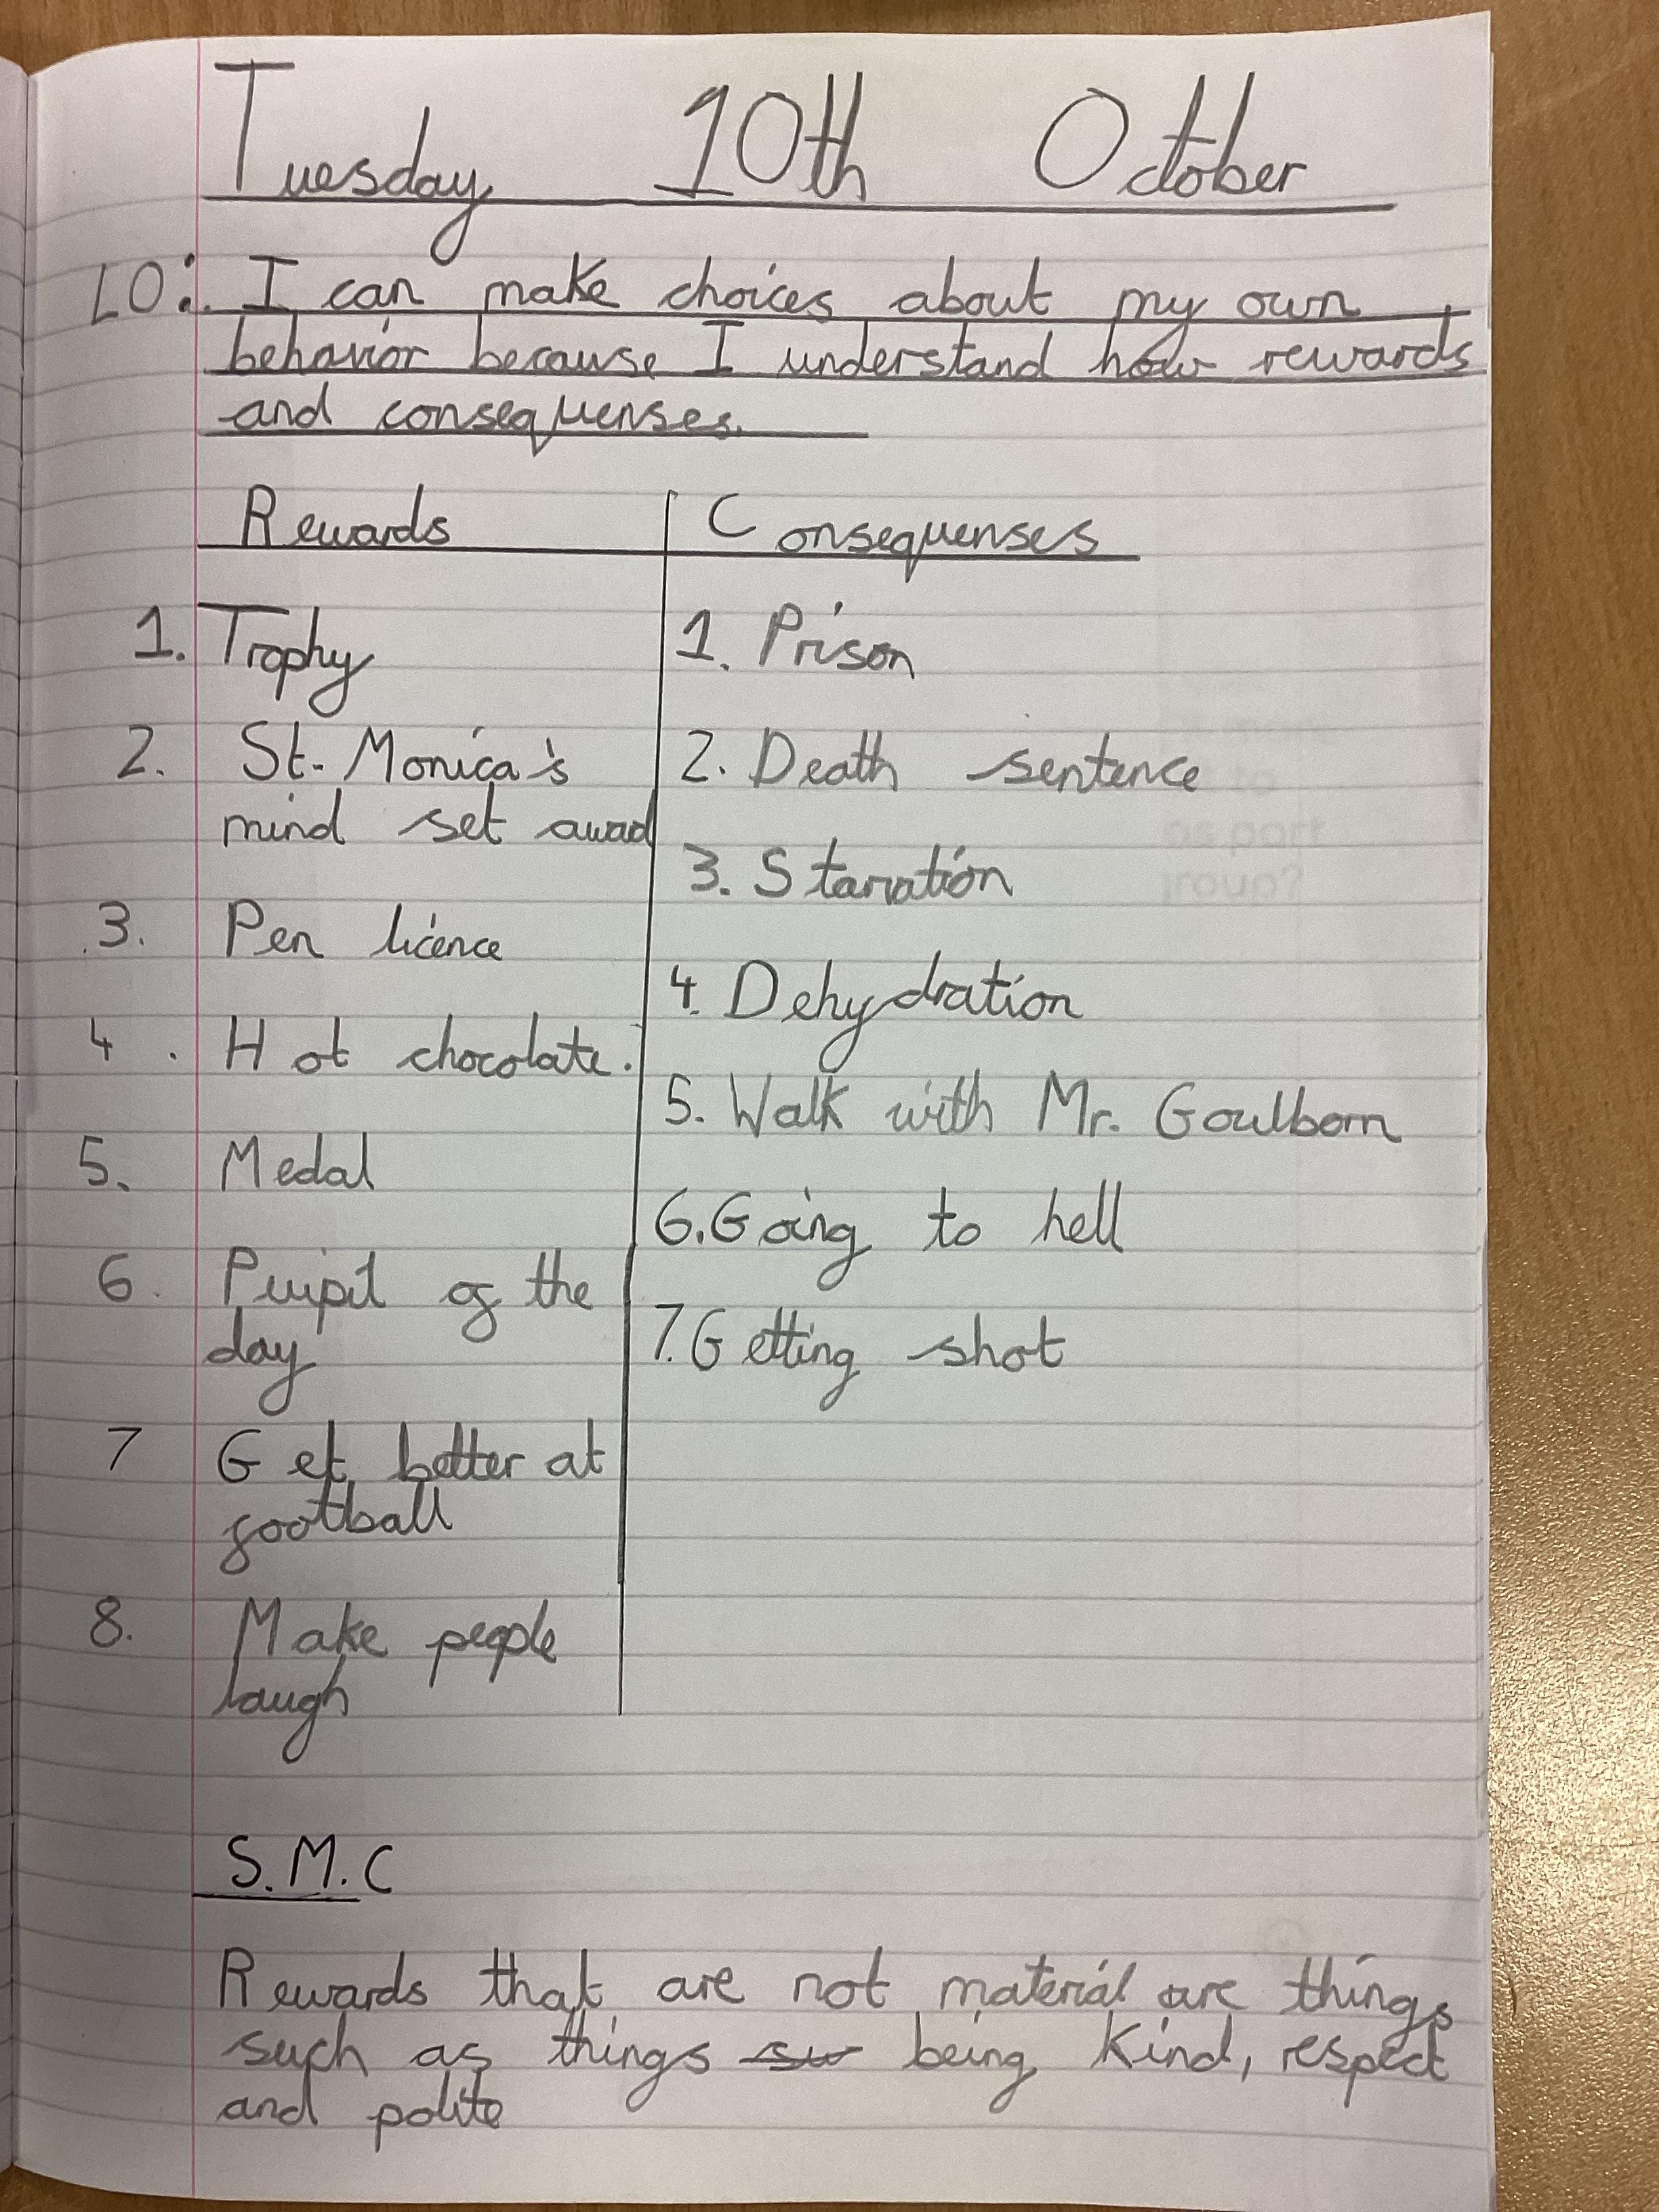 Tuesday 10th October
LO: I can make choices about my own
behavior because I understand how rewards
and consequenses.
Rewards
Consequenses
1. Trophy
2. St. Monica's
mind set award
3. Pen licence
4. Hot chocolate.
5. Medal
6. Puipil of the
day
7 Get better at
football
8. Make people
laugh
1. Prison
2. Death sentence
3. Starvation
4. Dehydration
5. Walk with Mr. Goulborn
6. Going to hell
7. Getting shot
S.M.C
Rewards that are not material are things
such as things su being kind, respect
and polite